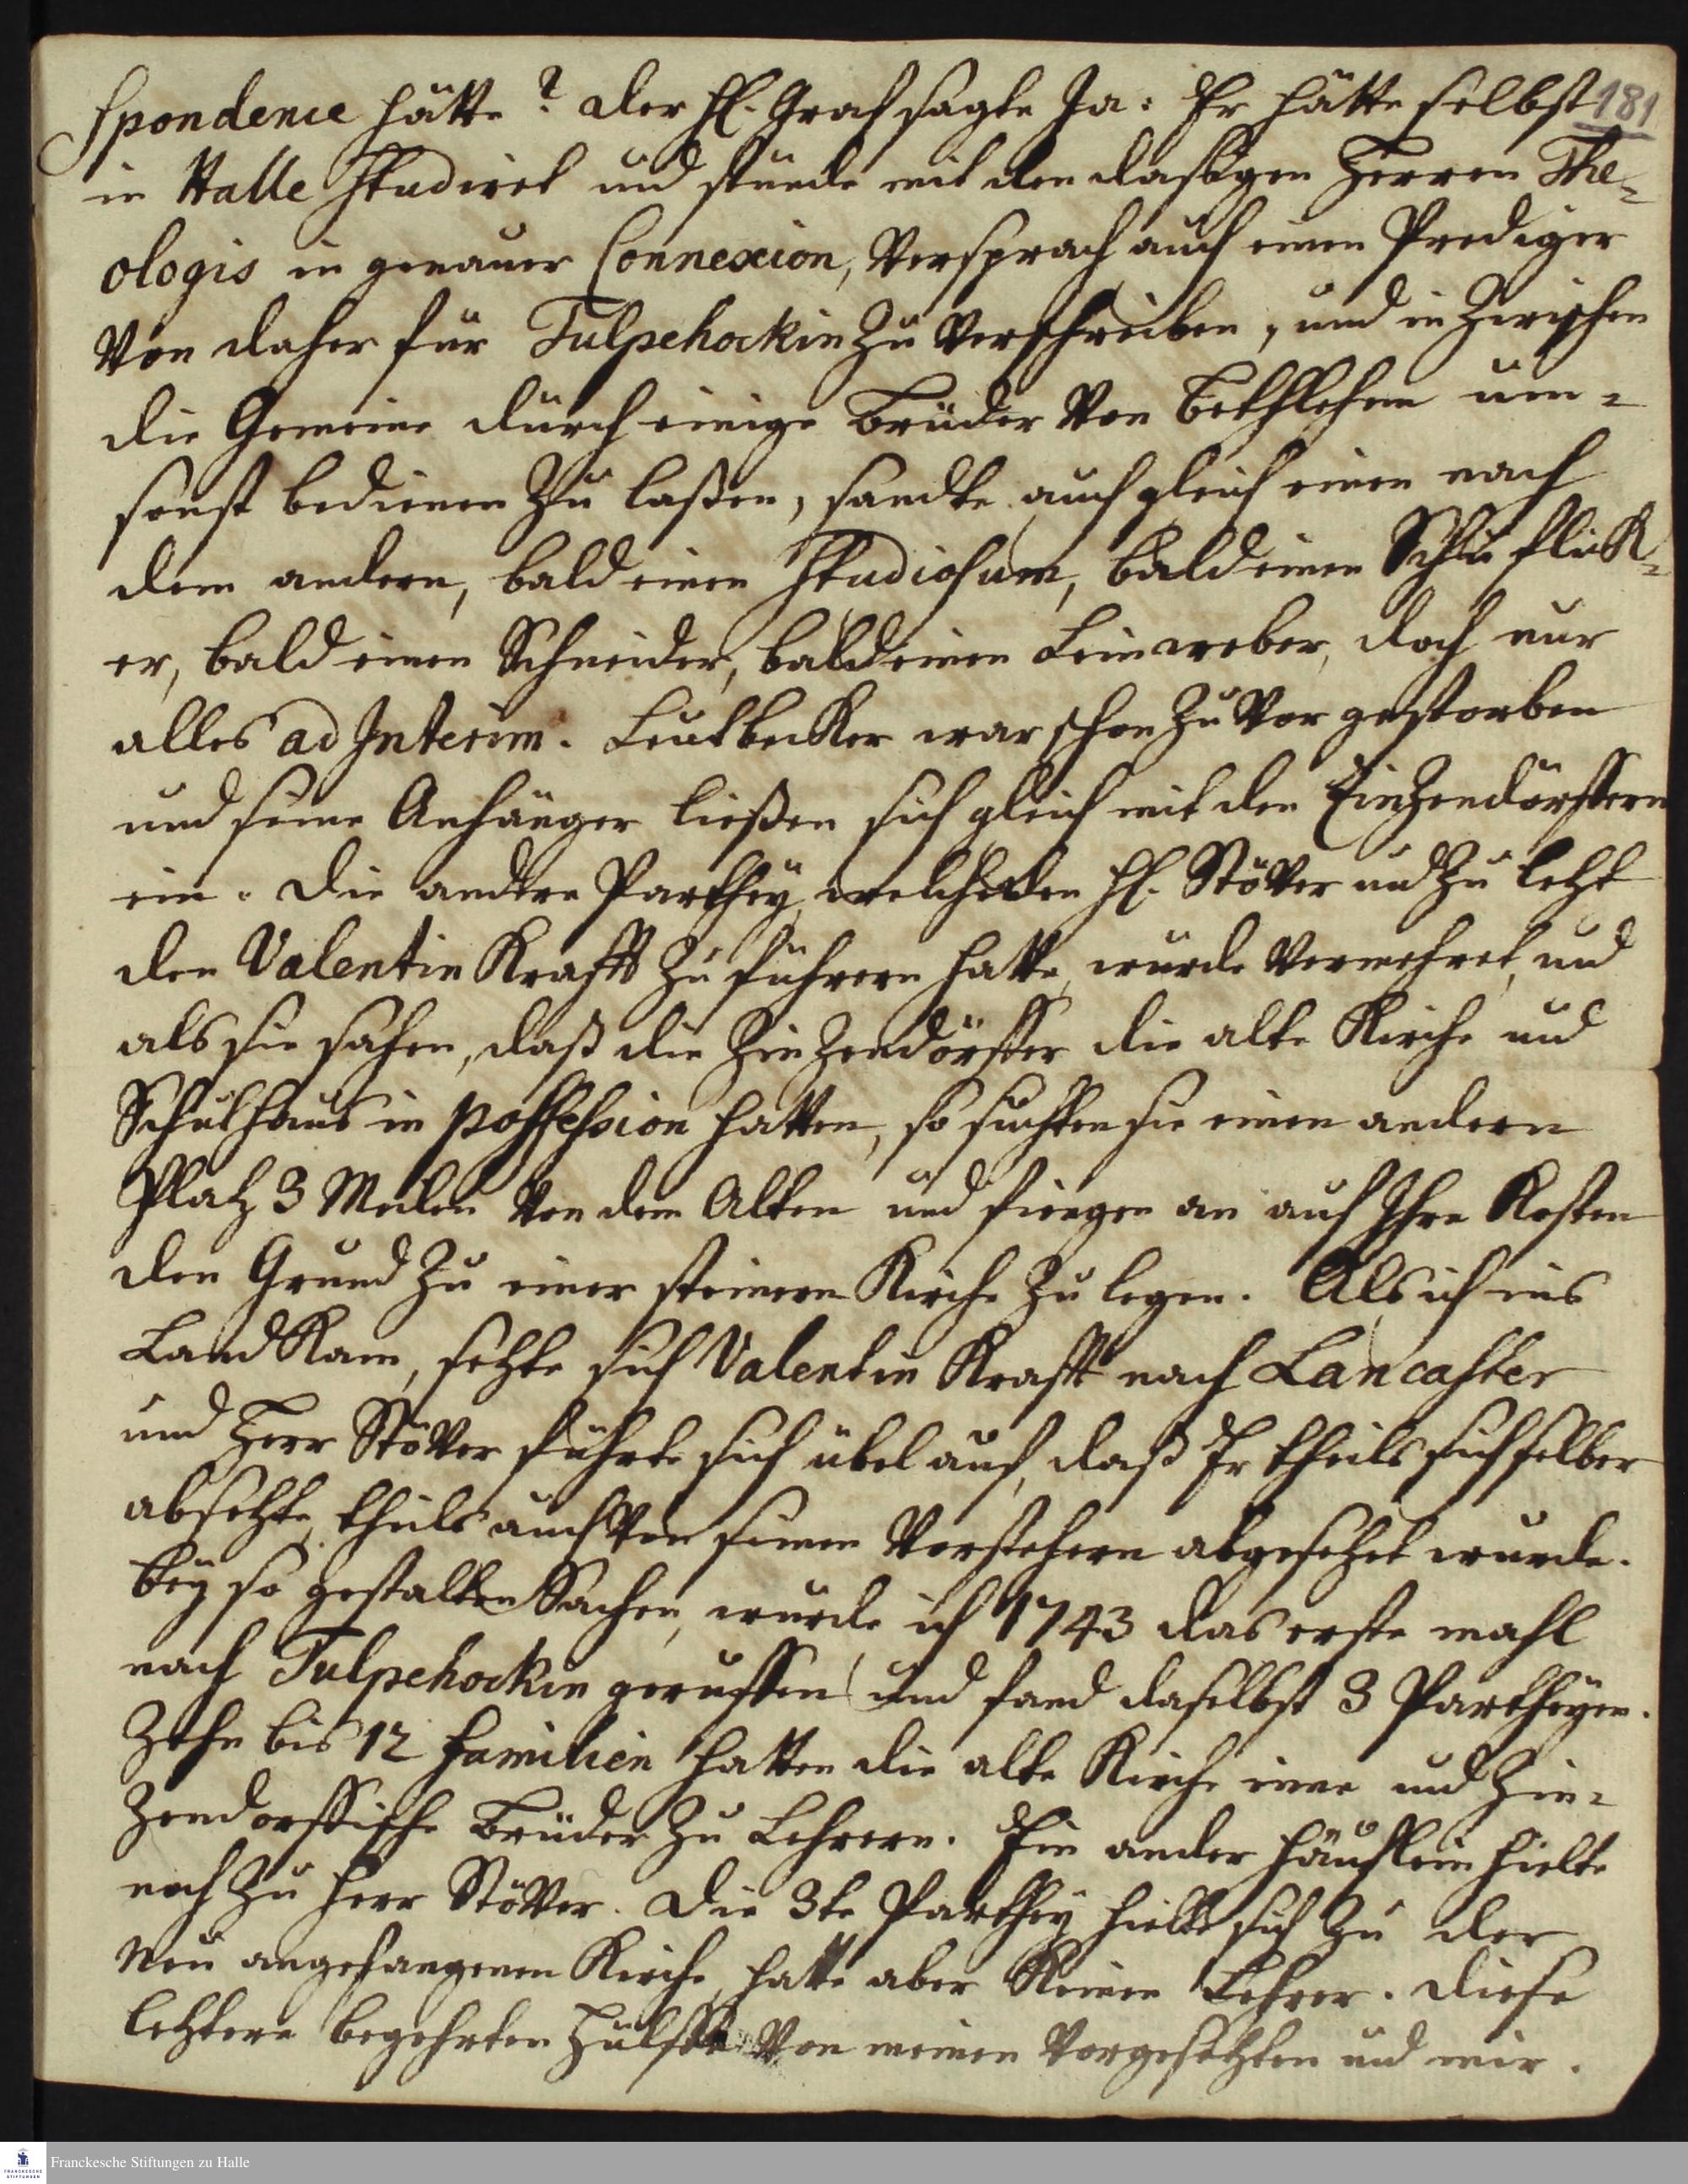 spondence hätte? der H. Graf sagte Ja: Er hätte selbst
181
in Halle studiret und stünde mit den dasigen Herren The-
ologis in genauer Connexion, versprach auch einen Prediger
von daher für Tulpehockin zu verschreiben, und in zwischen
die Gemeine durch einige Brüder von Bethlehem um-
sonst bedienen zu laßen, sandte auch gleich einen nach
dem andern, bald einen Studiosum, bald einen Schu flick-
er, bald einen Schneider, bald einen Leinweber, doch nur
alles ad Interim. Leutbecker war schon zuvor gestorben
und seine Anhänger ließen sich gleich mit den Zinzendörffern
ein. Die andere Parthey, welche den H. Stöver und zu letzt
den Valentin Krafft zu führern hatte, wurde vermehret, und
als sie sahen, daß die Zinzendörffer die alte Kirche und
Schulhaus in possession hatten, so suchten sie einen andern
Platz 3 Meilen von dem Alten und fiengen an auf Ihre Kosten
den Grund zu einer steinern Kirche zu legen. Als ich ins
Land kam, setzte sich Valentin Krafft nach Lancaster
und Herr Stöver führte sich übel auf, daß Er theils sich selber
absetzte, theils auch von seinen Vorstehern abgesetzet wurde.
Bey so gestalten Sachen, wurde ich 1743 das erste mahl
nach Tulpehockin geruffen und fand daselbst 3 Partheyen.
Zehn bis 12 Familien hatten die alte Kirche inne und Zin-
zendorffische Brüder zu Lehrern. Ein ander Häuflein hielte
noch zu Herr Stöver. Die 3te Parthey hielte sich zu der
neu angefangenen Kirche, hatte aber keinen Lehrer. Diese
letztere begehrten Hülffe von meinen Vorgesetzten und mir.
Franckesche Stiftungen zu Halle